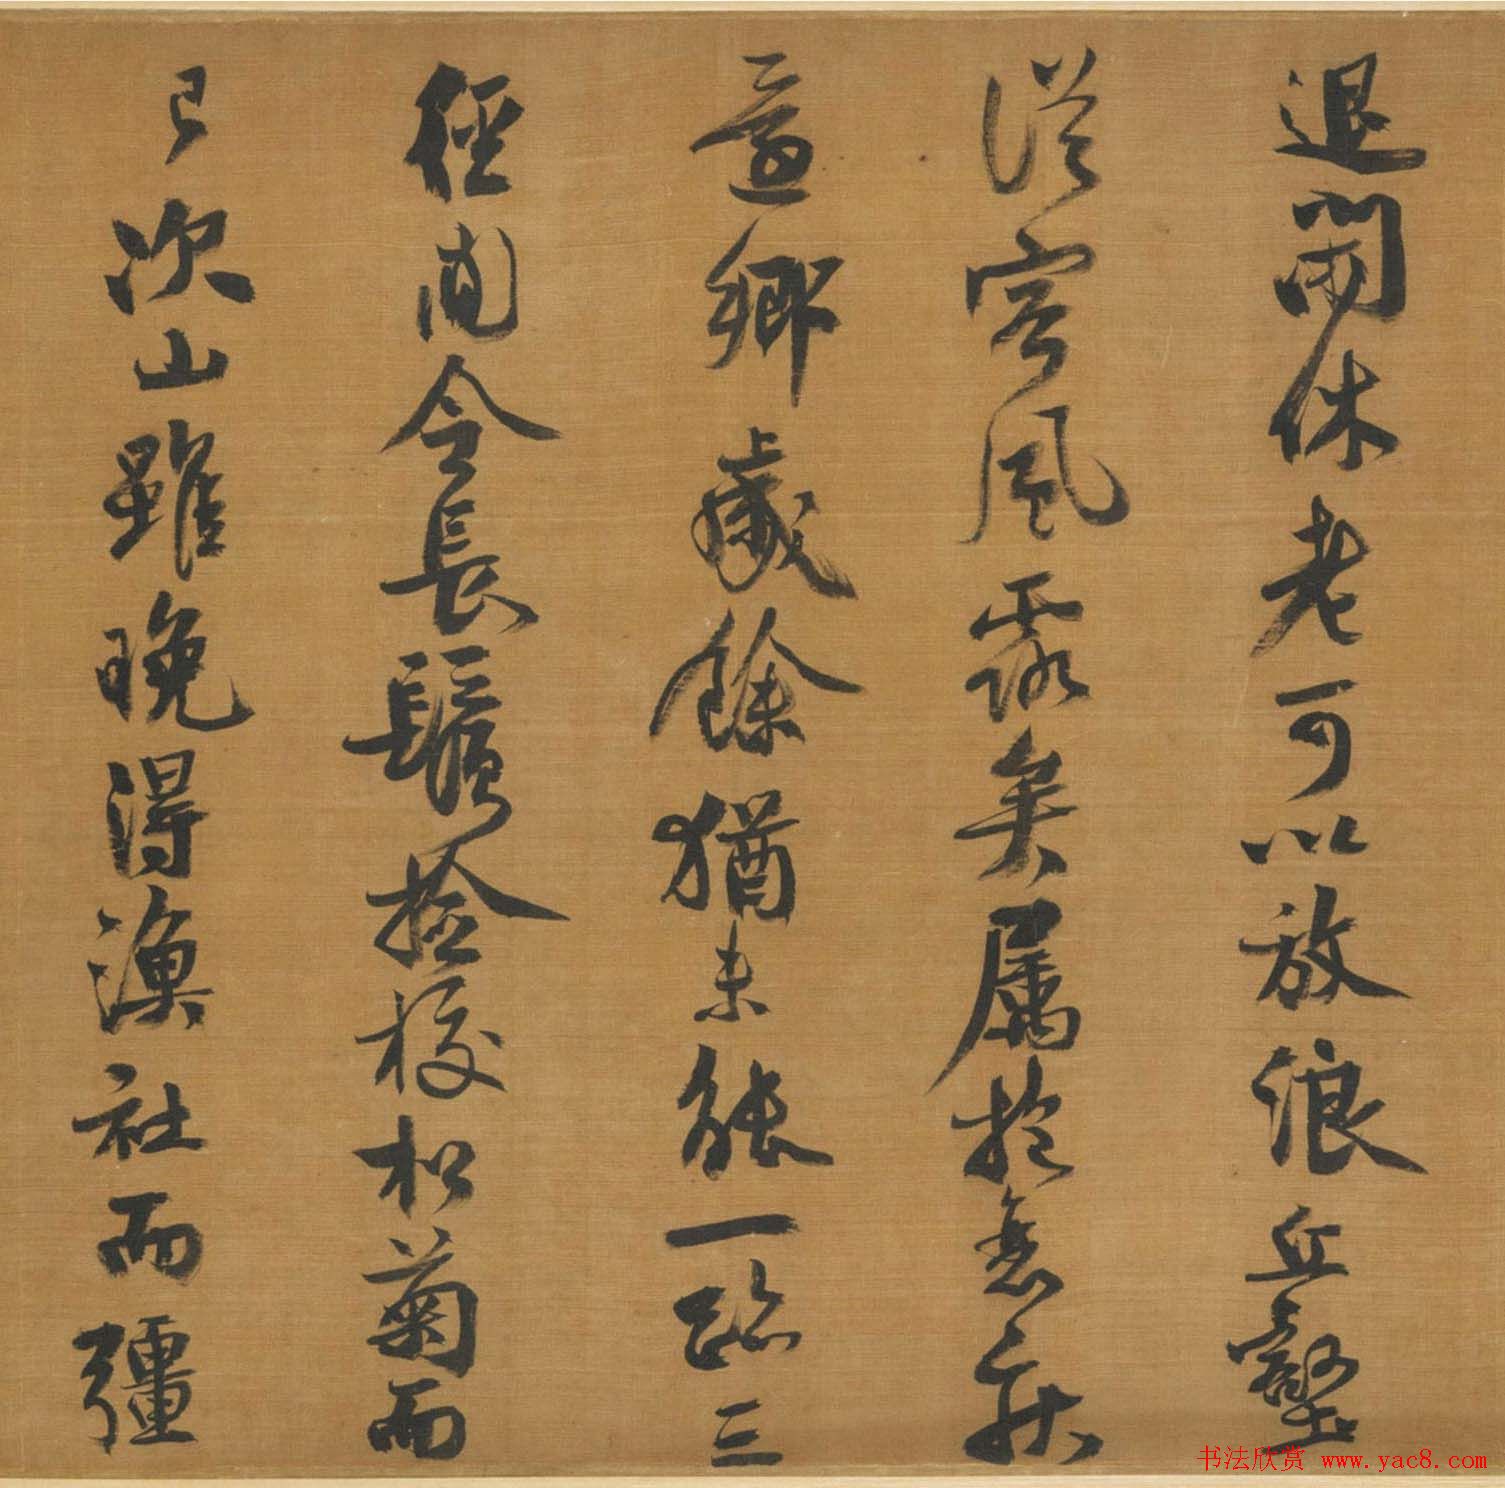 退閒休老可以放浪丘壑
從容風露矣屬於艱棘
意鄉歲餘猶未能一踏三
徑間令長鬚撿校松菊而
已次山雖晚得漁社而彊
书法欣赏 www.yac8.com